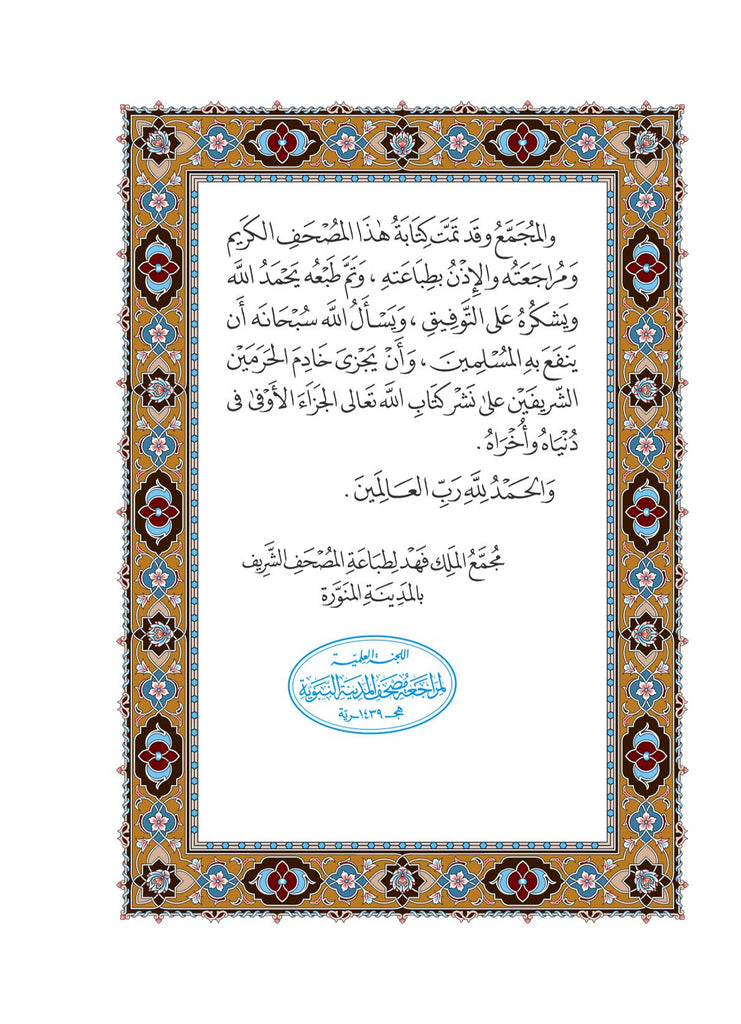 والمُجَمَّعُ وقَد تمَّتَ كِتَابَةُ هٰذَا المُصْحَفِ الكَرِيمِ
وَمُرَاجَعَتُه والإِذْنُ بِطِبَاعَتِهِ ، وَتَمَّ طَبْعُه يَحْمَدُ اللَّه
ويَشكُرُهُ عَلى التَّوفِيقِ ، وَيَسْأَلُ اللَّه سُبْحَانَه أَن
يَنفَع بِهِ المُسْلِمِينَ ، وَأَنْ يَجْزِىَ خَادِمَ الحَرَمَيْن
الشّرِيفَيْن عَلىٰ نَشْرِ كتَابِ اللَّه تَعَالى الجَزَاءَ الأَوْفىٰ فى
دُنْيَاهُ وأُخْرَاهُ .
وَالحَمْدُ لِلَّهِ رَبِّ العَالَمِينَ .
مُجَمَّعُ المَلِك فَهْد لِطِبَاعَةِ المُصْحَفِ الشَّرِيف
بالمَدِينَةِ المُنَوَّرة
اللجنة العِلميّة
لمراجَعة مُصْحَف المَدينَة النَّبَويَّة
١٤٣٩ هجـريّة